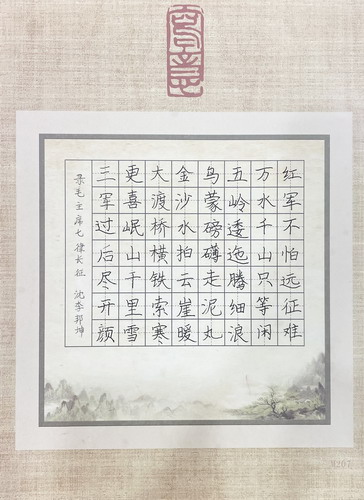 红军不怕远征难
万水千山只等闲
五岭逶迤腾细浪
乌蒙磅礴走泥丸
金沙水拍云崖暖
大渡桥横铁索寒
更喜岷山千里雪
三军过后尽开颜
录毛主席七律长征 沈